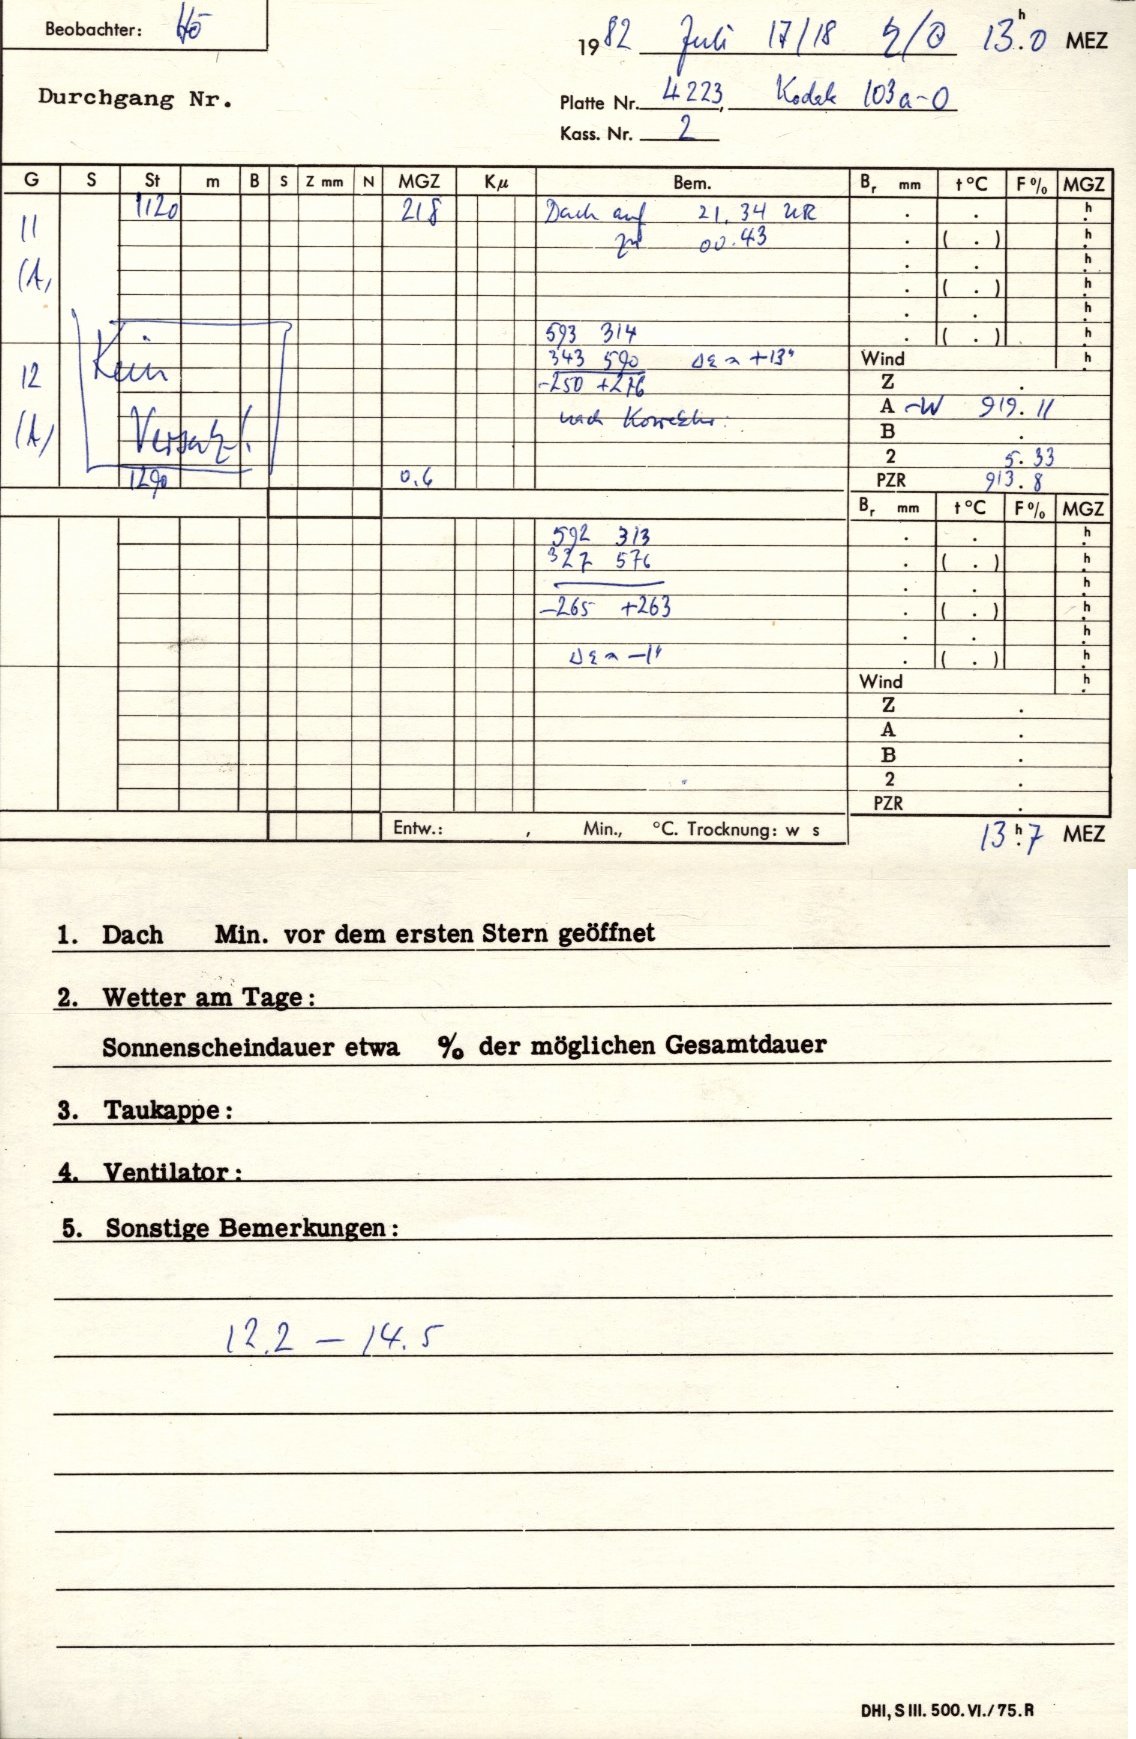 Beobachter: Hö
1982 Juli 17/18 ♄/☉ 13.ʰ0 MEZ
Durchgang Nr.
Platte Nr. 4223, Kodak 103a-O
Kass. Nr. 2
G S St m B S Z mm N MGZ Kμ Bem. Bᵣ mm t °C F % MGZ
1120 21.8 Dach auf 21.34 UR . . h
11 zu 00.43 . ( . ) h
. . h
(A) . ( . ) h
. . h
593 314 . ( . ) h
Kein 343 590 Δε ≈ +13" Wind h
12 -250 +276 Z .
nach Korrektur: A ~W 919.11
(A) Versatz! B .
2 5.33
1290 0.6 PZR 913.8
Bᵣ mm t °C F % MGZ
592 313 . . h
327 576 . ( . ) h
. . h
-265 +263 . ( . ) h
. . h
Δε ≈ -1" . ( . ) h
Wind h
Z .
A .
B .
2 .
PZR .
Entw.: , Min., °C. Trocknung: w s
13.ʰ7 MEZ
1. Dach Min. vor dem ersten Stern geöffnet
2. Wetter am Tage:
Sonnenscheindauer etwa % der möglichen Gesamtdauer
3. Taukappe:
4. Ventilator:
5. Sonstige Bemerkungen:
12.2 — 14.5
DHI, S III. 500. VI./75. R